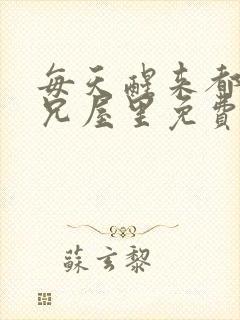 每天醒来都
兄屋里免費
蘇玄黎